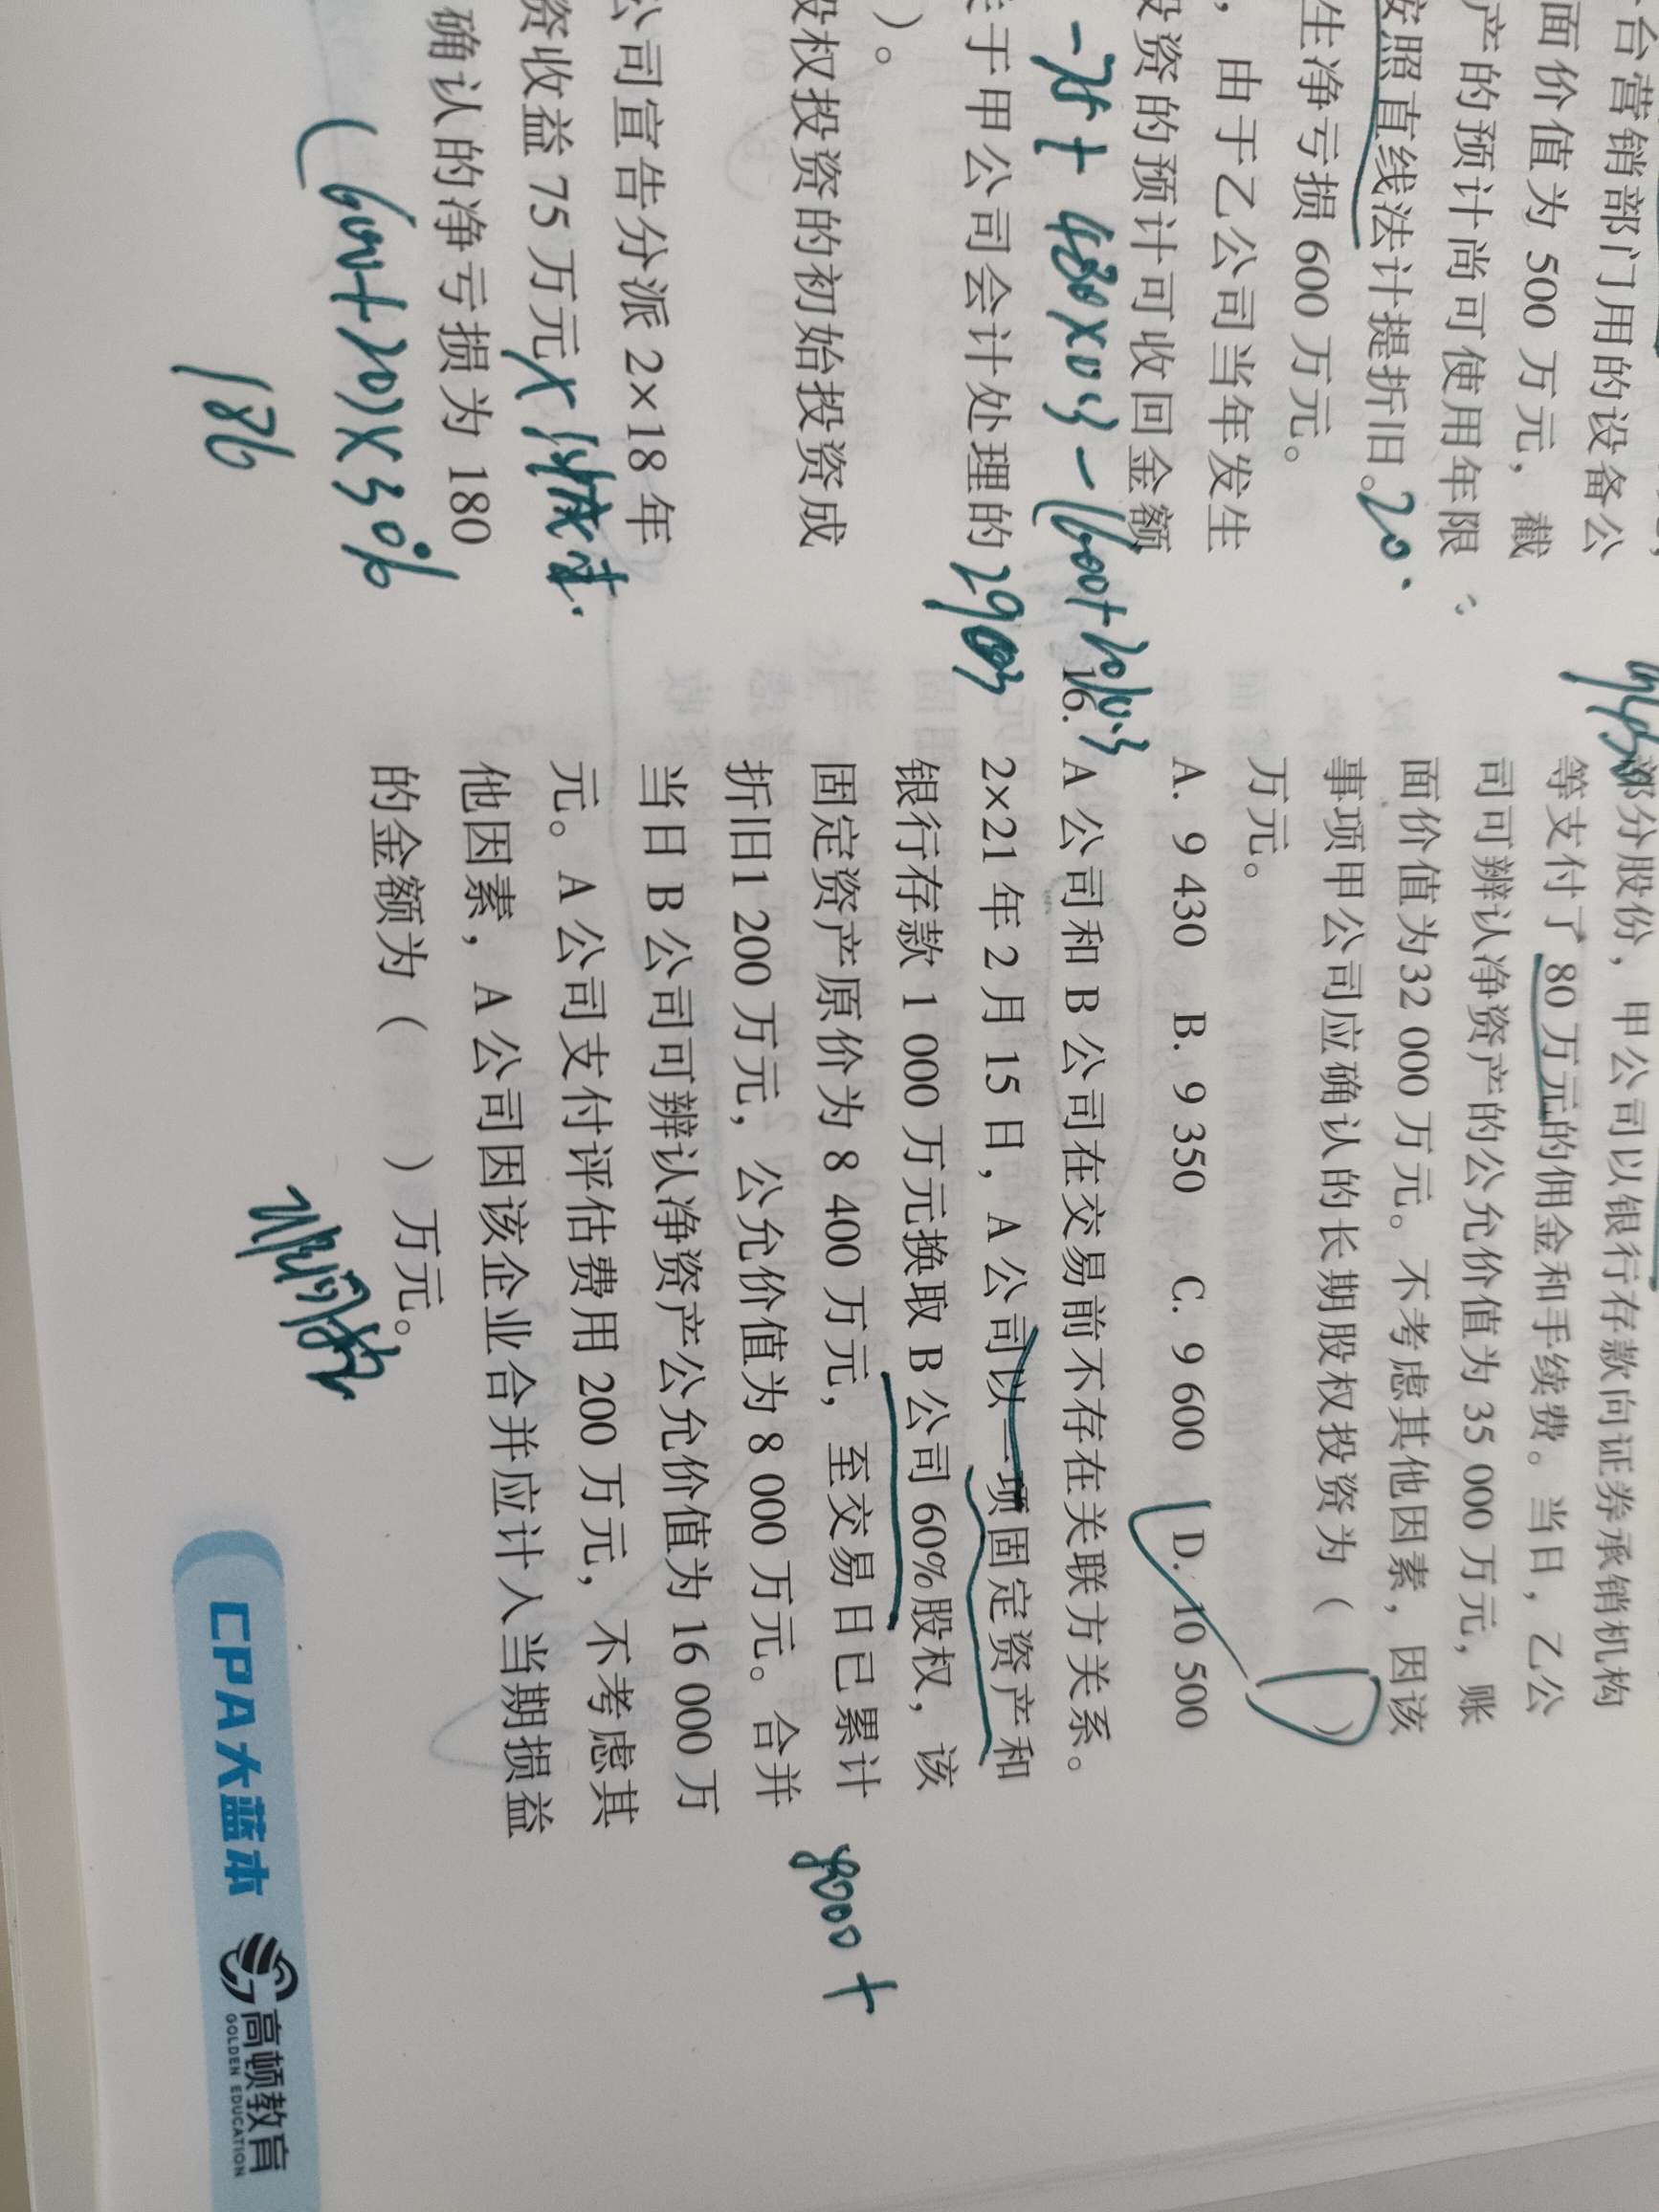 台营销部门用的设备公
面价值为 500 万元，截
产的预计尚可使用年限
安照直线法计提折旧。20.
生净亏损 600 万元。
，由于乙公司当年发生
投资的预计可收回金额
-75+ 480×0.3 - (600+20)0.3
于甲公司会计处理的 290
）。
股权投资的初始投资成
公司宣告分派 2×18 年
资收益 75 万元 ×
确认的净亏损为 180
(600+20)×30%
186
部分股份，甲公司以银行存款向证券承销机构
等支付了 80 万元的佣金和手续费。当日，乙公
司可辨认净资产的公允价值为 35 000 万元，账
面价值为32 000 万元。不考虑其他因素，因该
事项甲公司应确认的长期股权投资为（ ）
万元。
A. 9 430 B. 9 350 C. 9 600 D. 10 500
16. A 公司和 B 公司在交易前不存在关联方关系。
2×21 年 2 月 15 日，A 公司以一项固定资产和
银行存款 1 000 万元换取 B 公司 60%股权，该
固定资产原价为 8 400 万元，至交易日已累计
折旧1 200 万元，公允价值为 8 000 万元。合并
当日 B 公司可辨认净资产公允价值为 16 000 万
元。A 公司支付评估费用 200 万元，不考虑其
他因素，A 公司因该企业合并应计入当期损益
的金额为（ ）万元。
8000 +
CPA大蓝本 高顿教育
GOLDEN EDUCATION